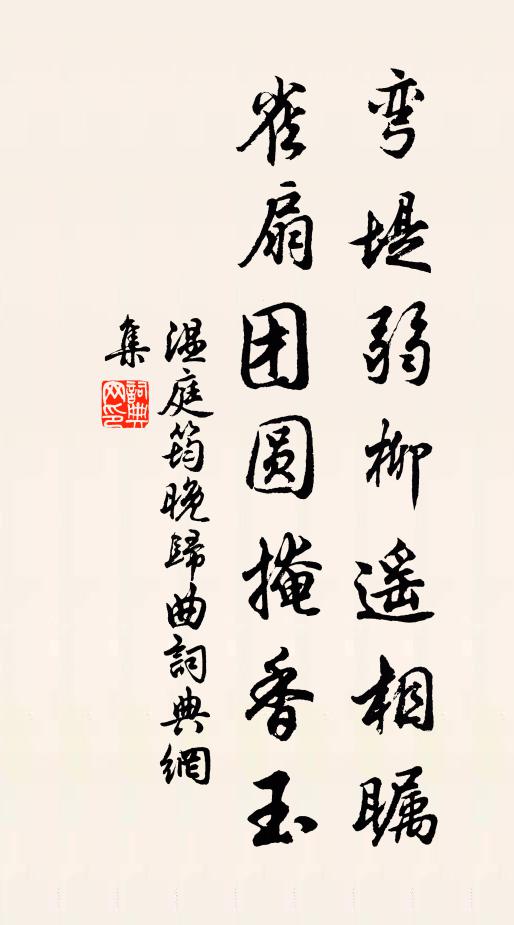 弯堤弱柳遥相瞩
雀扇团圆掩香玉
温庭筠晚歸曲詞典網
集
詞典网印